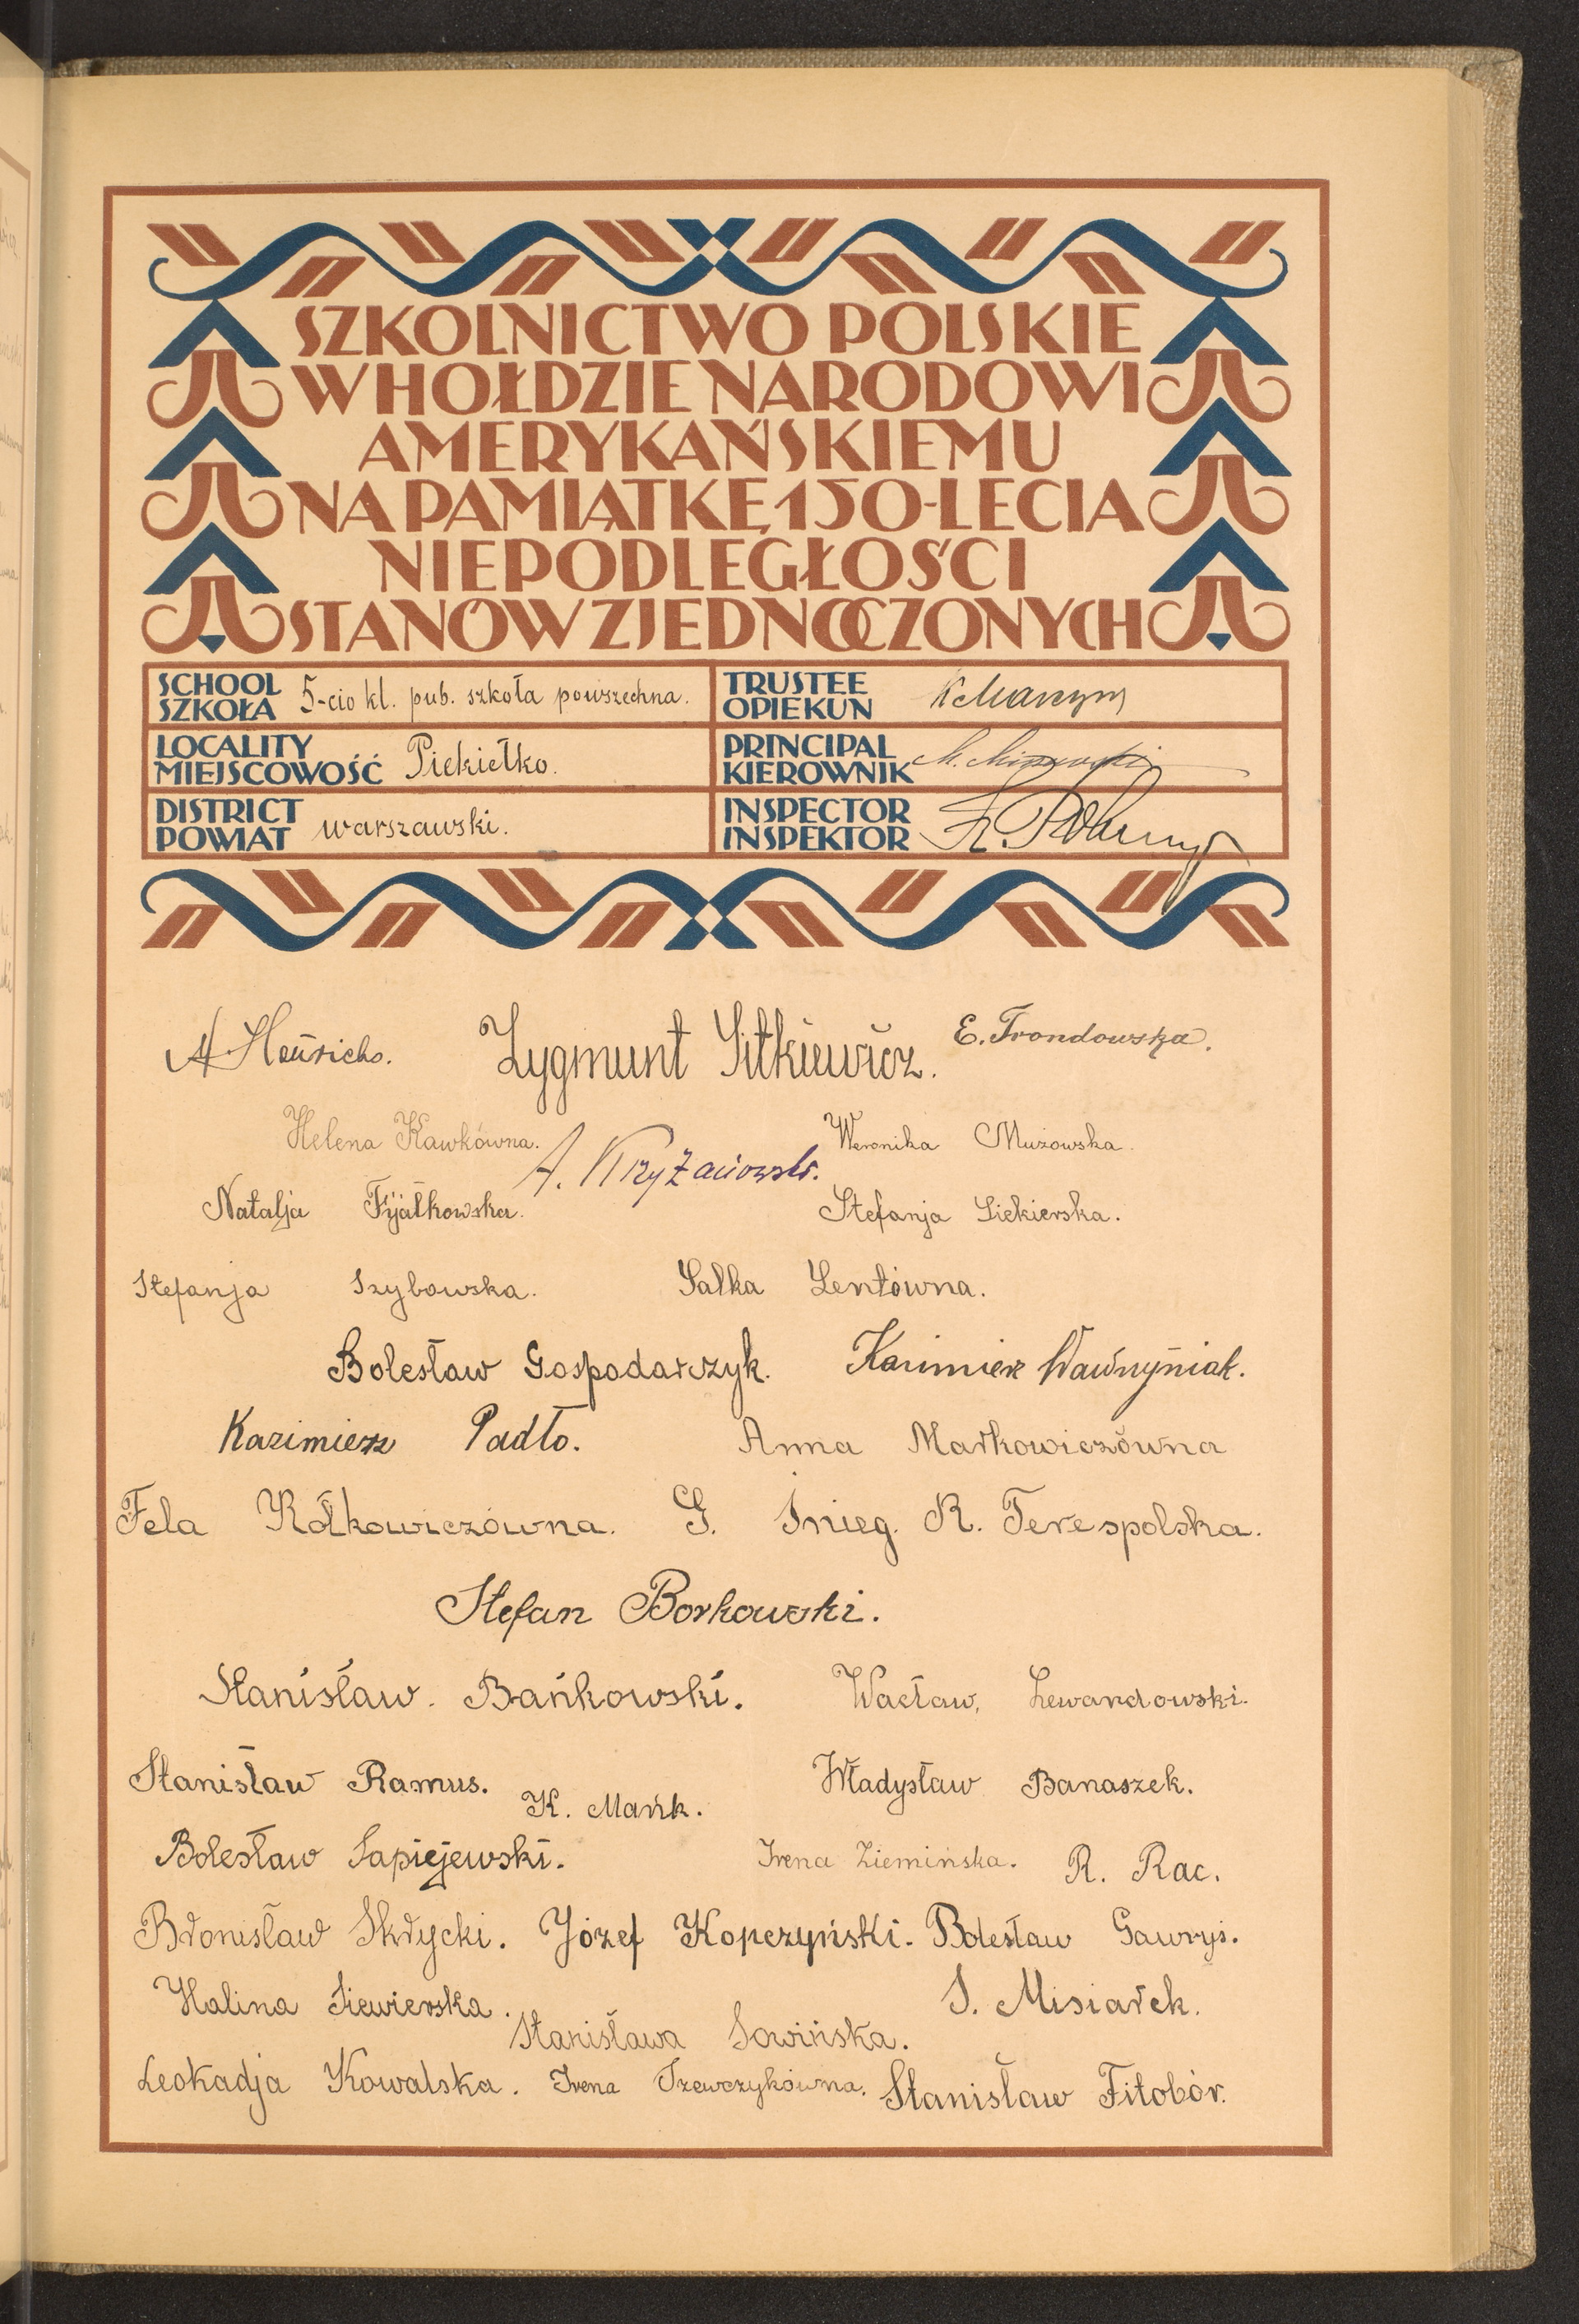 SZKOLNICTWO POLSKIE
W HOŁDZIE NARODOWI
AMERYKAŃSKIEMU
NA PAMIĄTKĘ 150-LECIA
NIEPODLEGŁOŚCI
STANÓW ZJEDNOCZONYCH
SCHOOL
SZKOŁA 5-cio kl. pub. szkoła powszechna.
TRUSTEE
OPIEKUN
LOCALITY
MIEJSCOWOŚĆ Piekiełko.
PRINCIPAL
KIEROWNIK
DISTRICT
POWIAT warszawski.
INSPECTOR
INSPEKTOR
Zygmunt Sitkiewicz. E. Trondowska.
Helena Kawkówna. Weronika Muzowska.
A. Krzyżanowski.
Natalja Fijałkowska. Stefanja Siekierska.
Stefanja Szybowska. Salka Lentówna.
Bolesław Gospodarczyk. Kazimierz Wawrzyniak.
Kazimierz Padło. Anna Markowiczówna
Fela Kołkowiczówna. G. Śnieg. R. Terespolska.
Stefan Borkowski.
Stanisław Bańkowski. Wacław Lewandowski.
Stanisław Ramus. K. Mańk. Władysław Banaszek.
Bolesław Sapiejewski. Irena Ziemińska. R. Rac.
Bronisław Skrycki. Józef Kopczyński. Bolesław Gawryś.
Halina Siewierska. S. Misiarek.
Stanisława Sowińska.
Leokadja Kowalska. Irena Szewczykówna. Stanisław Fitobór.